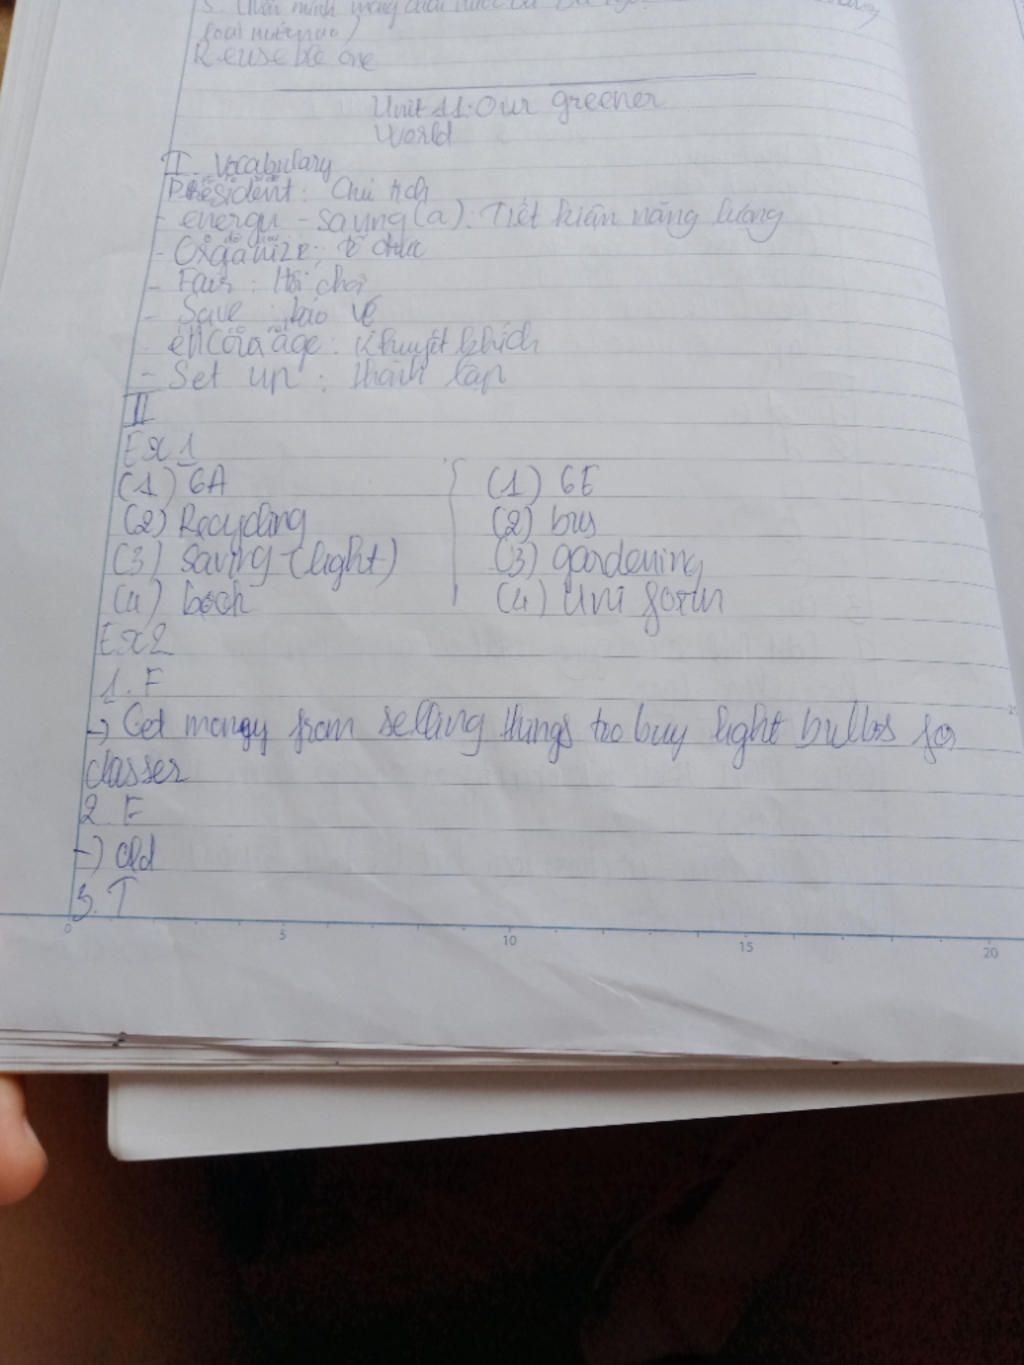 Reuseble one
Unit 11: Our greener
World
I. Vocabulary
President: Chủ tịch
- energy - saving (a): Tiết kiện năng lượng
- Organize: tổ chức
- Fair: Hội chợ
- Save: bảo vệ
- encourage: khuyết khích
- Set up: thành lập
II
Ex 1
(1) 6A
(2) Recycling
(3) saving (light)
(4) book
(1) 6E
(2) bus
(3) gardening
(4) Uniform
Ex2
1. F
-> Get money from selling things to buy light bulbs for
classes
2. F
-> old
3. T
0 5 10 15 20